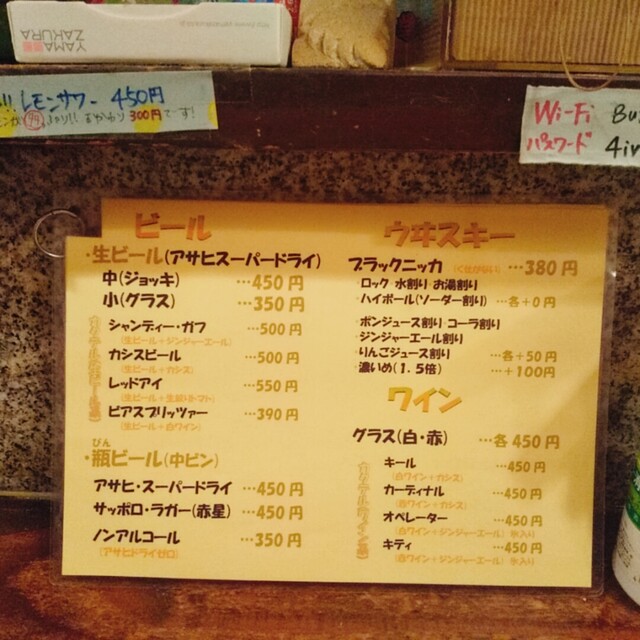 YAMA
ZAKURA
!! レモンサワー 450円
おかわり 300円です!
Wi-Fi Bu
パスワード 4in
ビール
・生ビール(アサヒスーパードライ)
中(ジョッキ) …450円
小(グラス) …350円
シャンディー・ガフ …500円
(生ビール+ジンジャーエール)
カシスビール …500円
(生ビール+カシス)
レッドアイ …550円
ビアスプリッツァー …390円
(生ビール+白ワイン)
びん
・瓶ビール(中ビン)
アサヒ・スーパードライ …450円
サッポロ・ラガー(赤星) …450円
ノンアルコール …350円
(アサヒドライゼロ)
ウヰスキー
ブラックニッカ …380円
・ロック・水割り・お湯割り
・ハイボール(ソーダー割り) …各+0円
・ポンジュース割り・コーラ割り
・ジンジャーエール割り
・りんごジュース割り …各+50円
・濃いめ(1.5倍) …+100円
ワイン
グラス(白・赤) …各450円
キール …450円
(白ワイン+カシス)
カーディナル …450円
オペレーター …450円
(白ワイン+ジンジャーエール) 氷入り
キティ …450円
ジンジャーエール) 氷入り